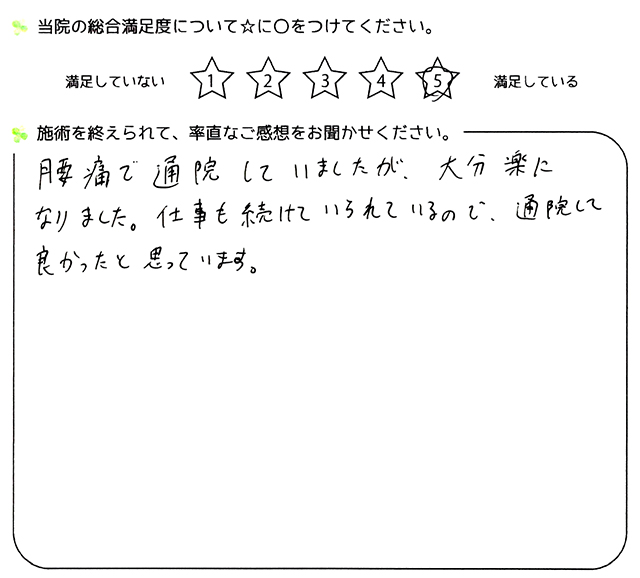 当院の総合満足度について☆に〇をつけてください。
満足していない 1 2 3 4 5 満足している
施術を終えられて、率直なご感想をお聞かせください。
腰痛で通院していましたが、大分楽に
なりました。仕事も続けていられているので、通院して
良かったと思っています。